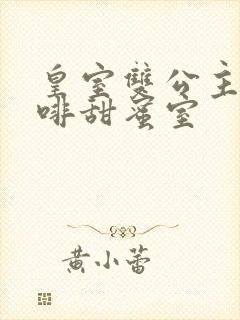 皇室雙公主
啡甜蜜室
黃小蕾